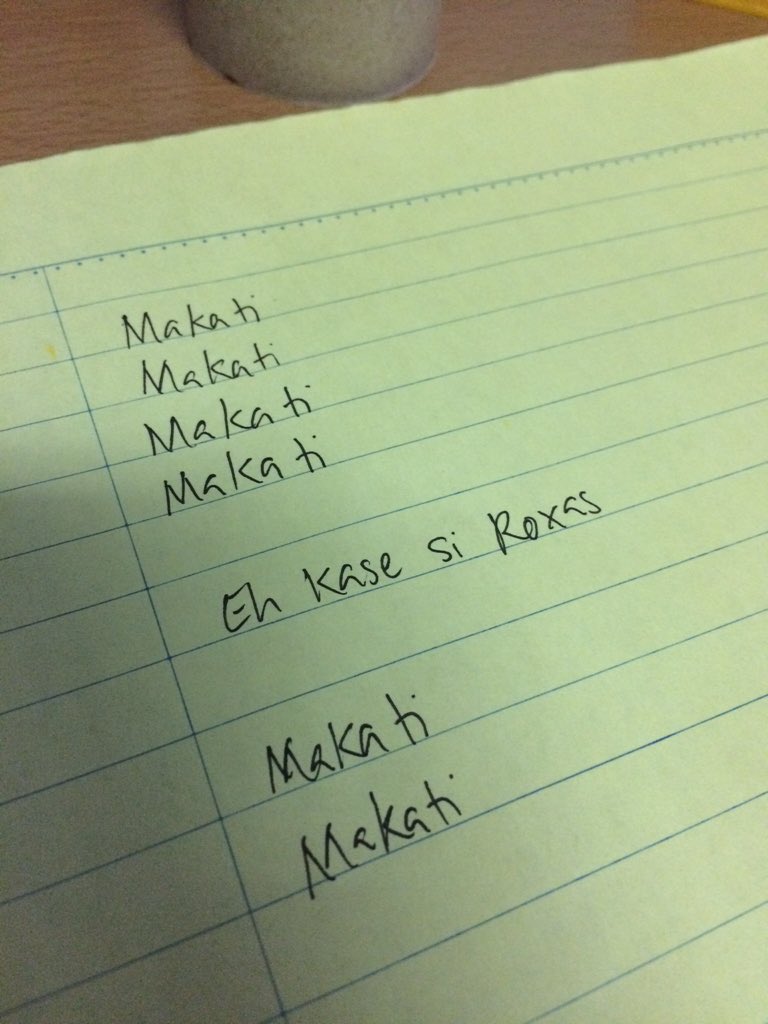 Makati
Makati
Makati
Makati
Eh kase si Roxas
Makati
Makati